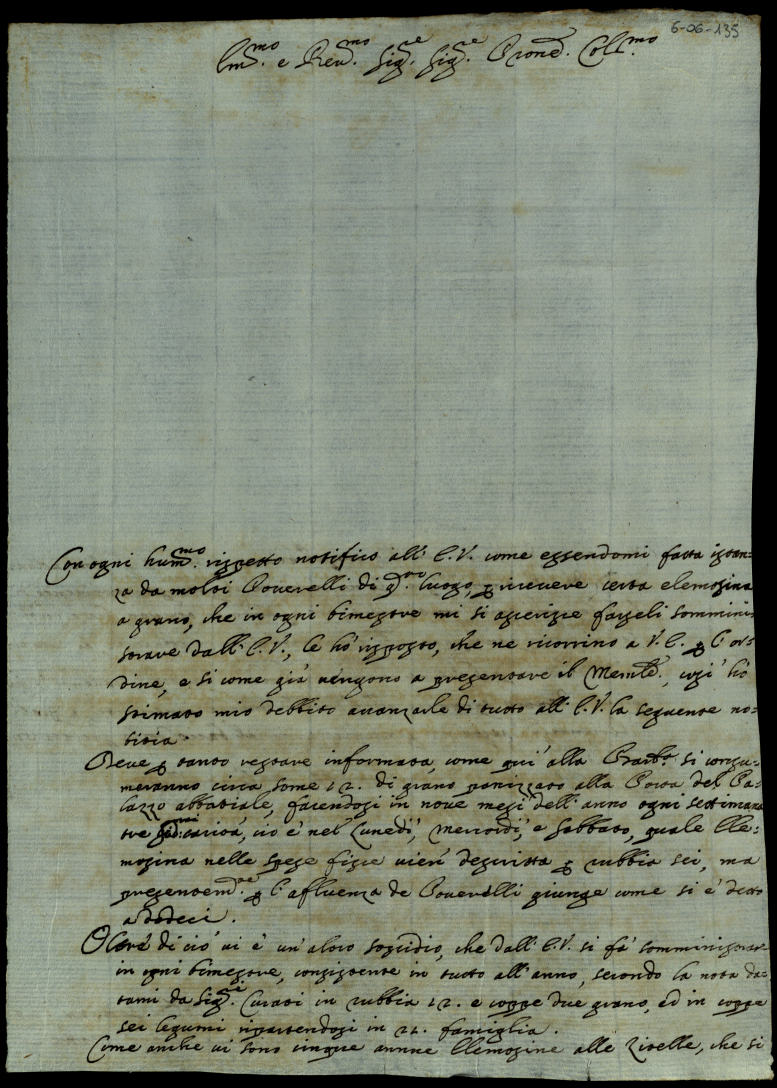 6-06-135
Ill.mo e Rev.mo Sig.re Sig.re Pron̄e. Coll.mo
Con ogni hum.mo rispetto notifico all' E.V. come essendomi fatta istan=
za da molti Poverelli di q.sto luogo, p ricevere certa elemosina
a grano, che in ogni bimestre mi si asserisce farseli sommini=
strare dall' E.V., le hò risposto, che ne ricorrino a V.E. p l'or=
dine, e si come già vengono a presentare il Mem.le, così hò
stimato mio debbito avanzarle di tutto all' E.V. la seguente no=
titia.
Deve p tanto restare informata, come quì alla si consu=
meranno circa some 12. di grano panizzato alla Porta del Pa=
lazzo abbatiale, facendosi in nove mesi dell' anno ogni settimana
tre carità, ciò è nel Lunedì, Mercordì, e Sabbato, quale Ele=
mosina nelle spese fisse vien descritta p rubbia sei, ma
presentem.te p l'affluenza de Poverelli giunge come si è detto
a dodeci.
Oltre di ciò vi è un' altro sossidio, che dall' E.V. si fà somministrare
in ogni bimestre, consistente in tutto all' anno, secondo la nota da=
tami da Sig.ri Curati in rubbia 12. e coppe due grano, ed in coppe
sei legumi ripartendosi in 21. famiglia.
Come anche vi sono cinque annue Elemosine alle Zitelle, che si